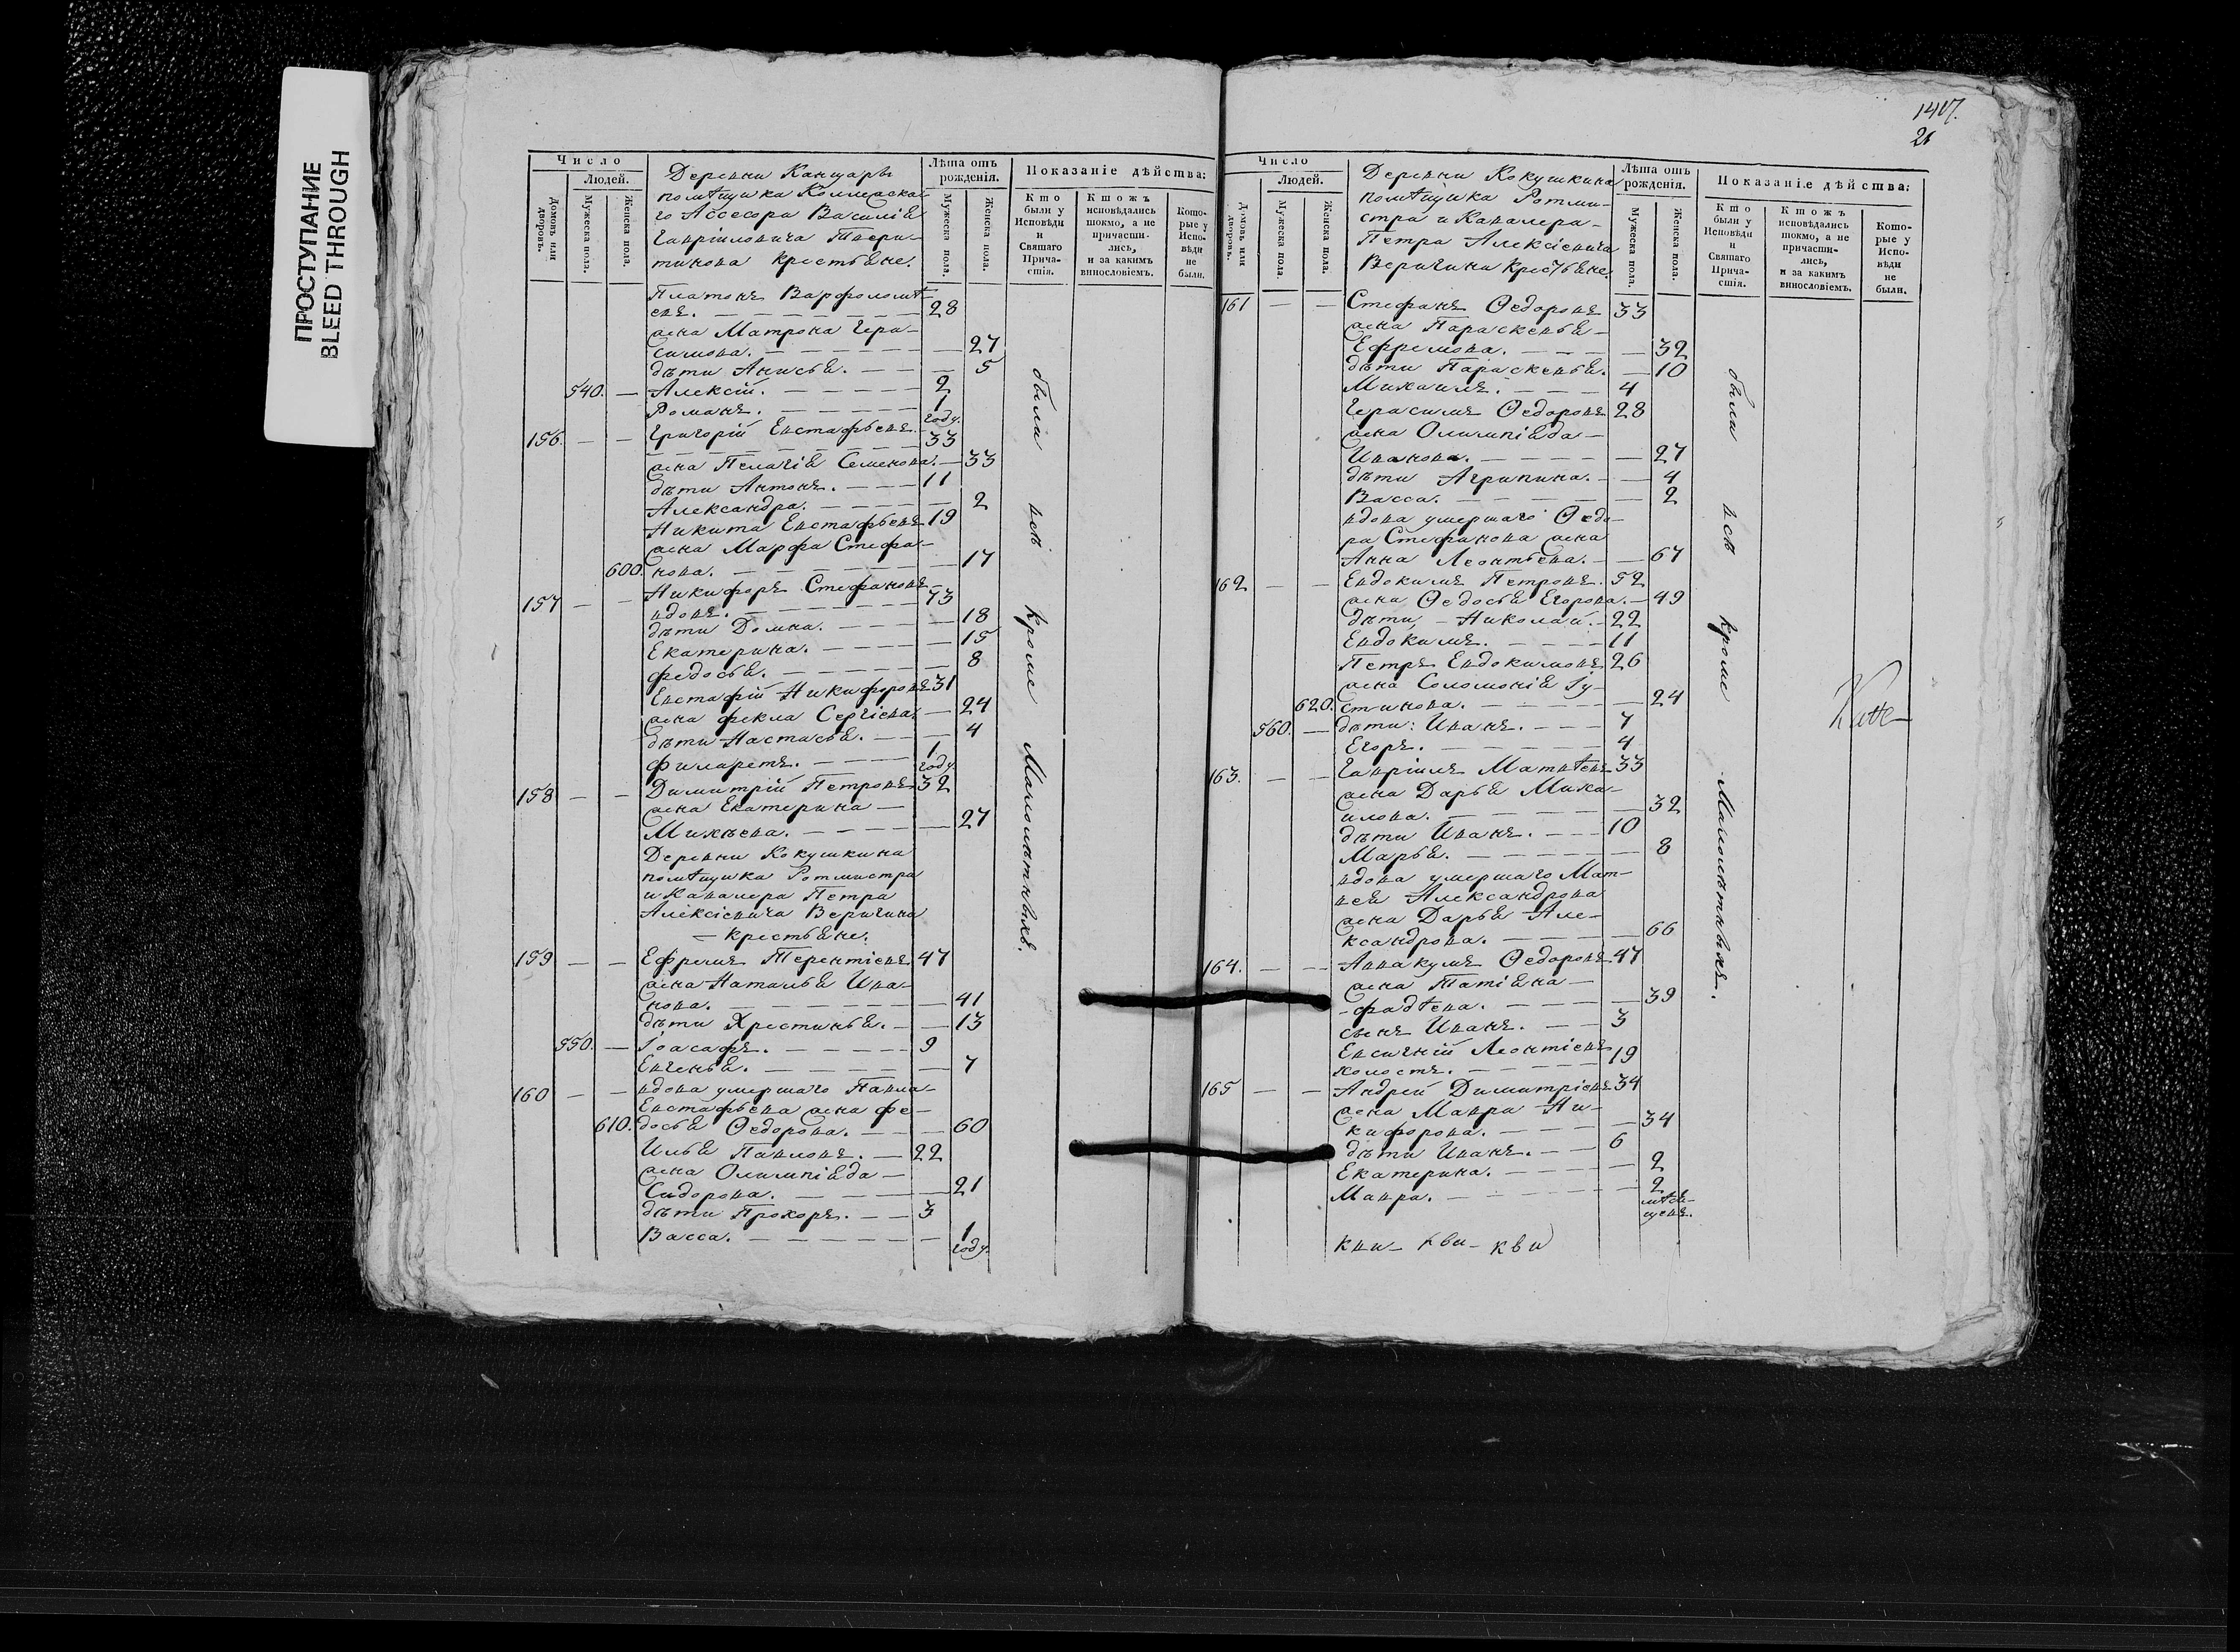 ПРОСТУПАНИЕ
BLEED THROUGH
Число
Людей.
Домовъ или дворовъ.
Мужеска пола.
Женска пола.
Деревни Канцарь
помѣщика Коллежска-
го Ассесора Василія
Гавріиловича Твери-
тинова крестьяне.
Лѣта отъ рожденія.
Мужеска пола.
Женска пола.
Показаніе дѣйства:
Кто были у Исповѣди и Святаго Причастія.
Ктожъ исповѣдались токмо, а не причастились, и за какимъ винословіемъ.
Которые у Исповѣди не были.
Платонъ Варфоломѣ-
евъ. 28
жена Матрона Гера-
симова. 27
дѣти Анисья. 5
540. Алексій. 2
Романъ. 1 году.
156. Григорій Евстафьевъ. 33
жена Пелагія Семенова. 33
дѣти Антонъ. 11
Александра. 2
Никита Евстафьевъ 19
жена Марфа Стефа-
600. нова. 17
157 Никифоръ Стефановъ
вдовъ. 73
дѣти Домна. 18
Екатерина. 15
Федосья. 8
Евстафій Никифоровъ 31
жена Фекла Сергіева. 24
дѣти Настасья. 4
Филаретъ. 1 году.
158 Димитрій Петровъ 32
жена Екатерина
Михѣева. 27
Деревни Кокушкина
помѣщика Ротмистра
и Кавалера Петра
Алексіевича Веригина
крестьяне.
159 Ефремъ Терентіевъ 47
жена Наталья Ива-
нова. 41
дѣти Христинья. 13
550. Іоасафъ. 9
Евгенья. 7
160 вдова умершаго Павла
Евстафьева жена Фе-
610. досья Ѳедорова. 60
Илья Павловъ. 22
жена Олимпіяда
Сидорова. 21
дѣти Прохоръ. 3
Васса. 1 году.
были всѣ кроме Малолѣтныхъ.
1407.
21
Число
Людей.
Домовъ или дворовъ.
Мужеска пола.
Женска пола.
Деревни Кокушкина
помѣщика Ротми-
стра и Кавалера
Петра Алексіевича
Веригина крестьяне.
Лѣта отъ рожденія.
Мужеска пола.
Женска пола.
Показаніе дѣйства:
Кто были у Исповѣди и Святаго Причастія.
Ктожъ исповѣдались токмо, а не причастились, и за какимъ винословіемъ.
Которые у Исповѣди не были.
161 Стефанъ Ѳедоровъ 33
жена Параскевья
Ефремова. 32
дѣти Параскевья. 10
Михаилъ. 4
Герасимъ Ѳедоровъ 28
жена Олимпіяда
Иванова. 27
дѣти Агрипина. 4
Васса. 2
вдова умершаго Ѳедо-
ра Стефанова жена
Анна Леонтьева. 67
162 Евдокимъ Петровъ. 52
жена Ѳедосья Егорова. 49
дѣти, Николай. 22
Евдокимъ. 11
Петръ Евдокимовъ 26
жена Соломонія Іу-
620. стинова. 24
560. дѣти: Иванъ. 7
Егоръ. 4
163. Гавріилъ Матвѣевъ 33
жена Дарья Миха-
илова. 32
дѣти Иванъ. 10
Марья. 8
вдова умершаго Мат-
вея Александрова
жена Дарья Але-
ксандрова. 66
164. Аввакумъ Ѳедоровъ 47
жена Татіяна
Фадѣева. 39
сынъ Иванъ. 3
Евсигній Леонтіевъ
холостъ. 19
165 Андрей Димитріевъ 34
жена Мавра Ни-
кифорова. 34
дѣти Иванъ. 6
Екатерина. 2
Мавра. 2 мѣся-
цевъ.
были всѣ кроме Малолѣтныхъ.
кви- кви- кви